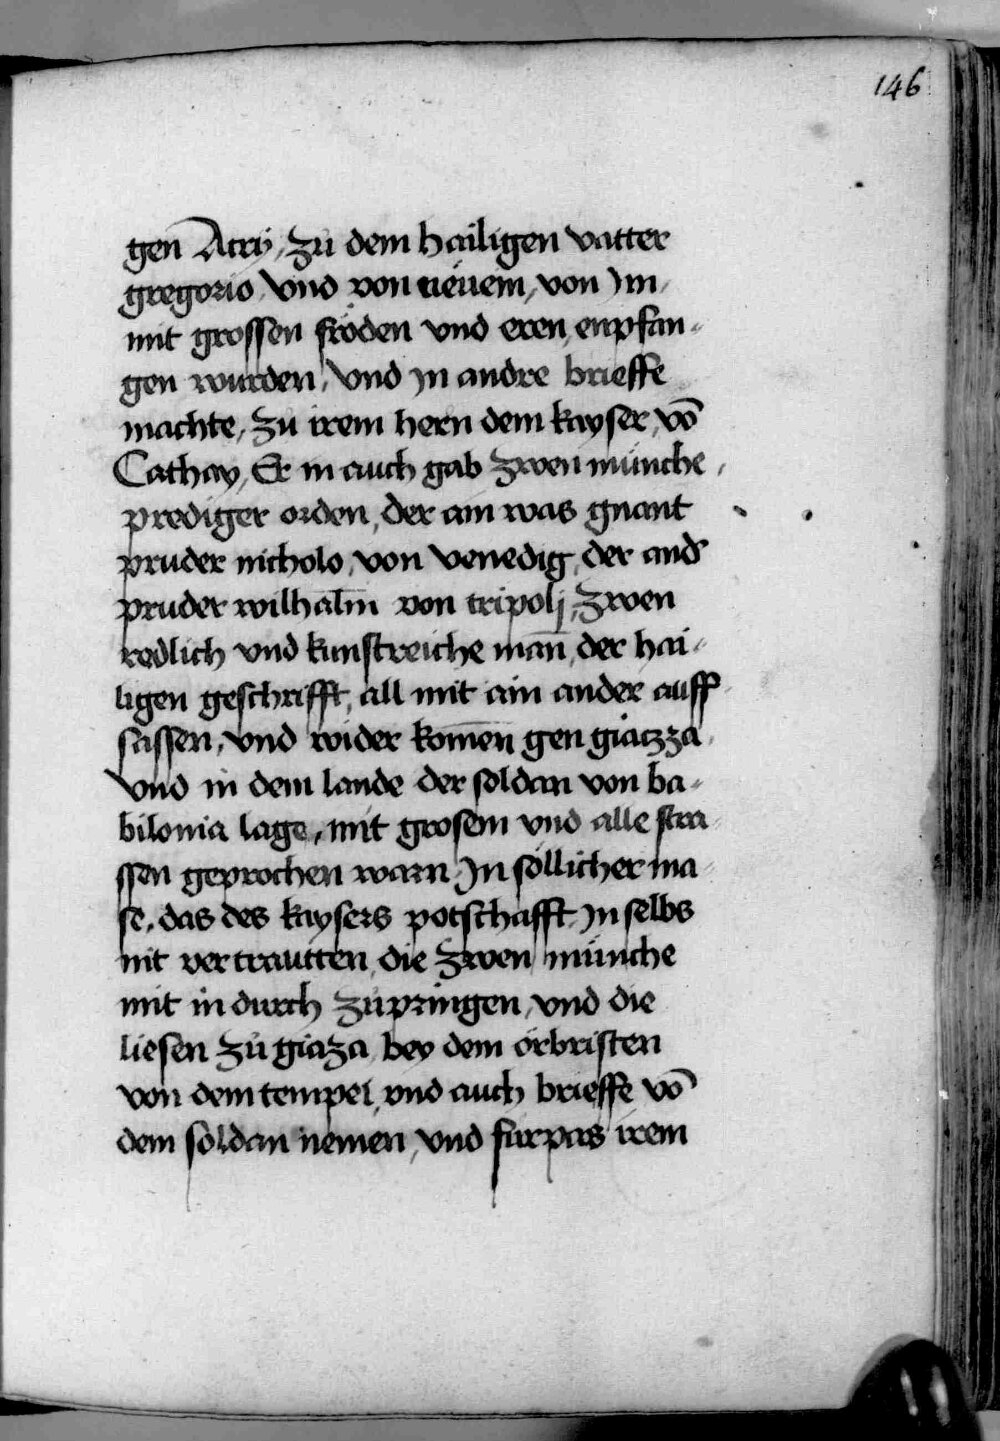 146
gen Acrÿ, zů dem hailigen vatter
gregorio, Vnd von neüem, von Jm,
mit grossen fröden vnd eren, enpfan-
gen wurden, Vnd Jn andre brieffe
machte, zů irem hern dem kayser, vō
Cathay, Er in auch gab zwen münche,
prediger orden, der ain was gnant
pruder nicholo, von Venedig, der and
pruder wilhālm von tripolj, zwen
redlich vnd kunstreiche man̄, der hai-
ligen geschrifft, all mit ain ander auff
sassen, vnd wider komēn gen giazza,
Vnd in dem lande der soldan von ba-
bilonia lage, mit grosem vnd alle stra-
ssen geprochen warn, Jn söllicher ma-
se, das des kaysers potschafft, Jn selbs
nit vertrautten, die zwen münche
mit in durch zůpringen, vnd die
liesen zů giaza, bey dem örbristen
von dem tempel, vnd auch brieffe vō
dem soldan nemen, vnd fürpas irem